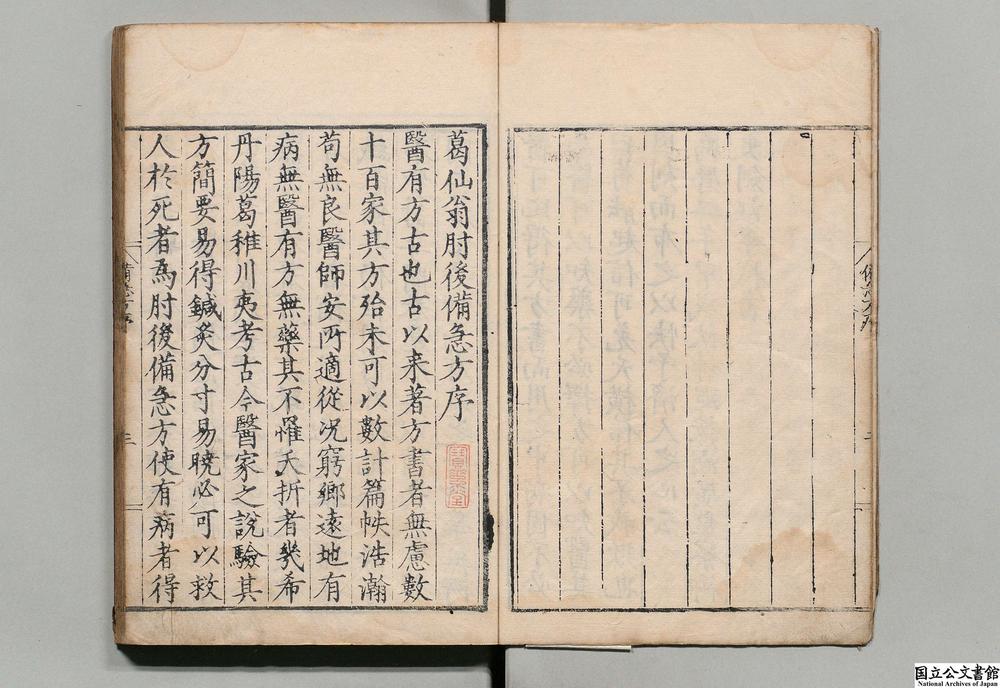 葛仙翁肘後備急方序
醫有方古也古以来著方書者無慮數
十百家其方殆未可以數計篇帙浩瀚
苟無良醫師安所適從况窮鄉遠地有
病無醫有方無藥其不罹夭折者幾希
丹陽葛稚川夷考古今醫家之說驗其
方簡要易得鍼灸分寸易曉必可以救
人於死者為肘後備急方使有病者得
国立公文書館
National Archives of Japan